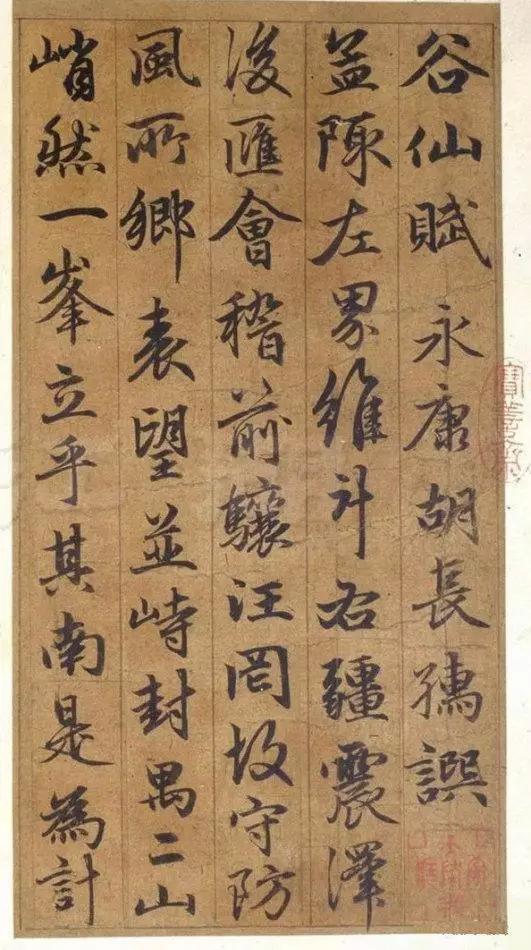 谷仙賦　永康胡長孺譔
益陳左界維計右疆震澤
後匯會稽前驤汪罔故守防
風所鄉表望並峙封禺二山
峭然一峯立乎其南是為計